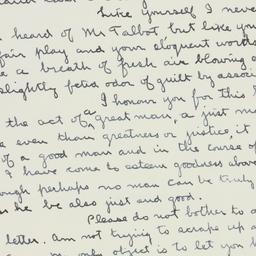 Like yourself I never
heard of Mr Talbot, but like you
fair play and your eloquent words
a breath of fresh air blowing
slightly fetid odor of guilt by associ
I honour you for this
the act of a great man, a just m
even than greatness or justice, it
of a good man and in the course of
I have come to esteem goodness above
ough perhaps no man can be truly
he be also just and good.
Please do not bother to a
letter. Am not trying to scrape up a
only object is to let you k